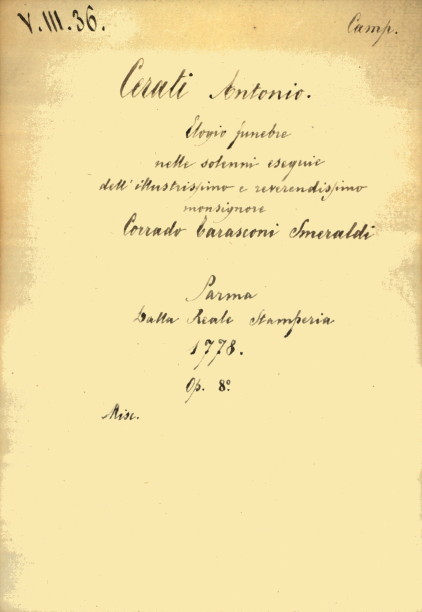 V.III.36.
Camp.
Cerati Antonio.
Elogio funebre
nelle solenni esequie
dell'illustrissimo e reverendissimo
monsignore
Corrado Tarasconi Smeraldi
Parma
Dalla Reale Stamperia
1778.
Op. 8º.
Misc.